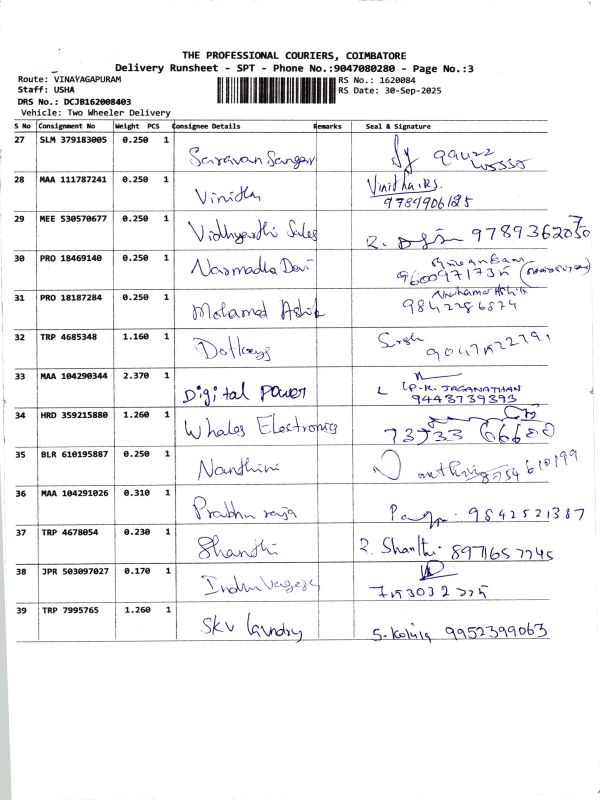 THE PROFESSIONAL COURIERS, COIMBATORE
Delivery Runsheet - SPT - Phone No.:9047080280 - Page No.:3
Route: VINAYAGAPURAM RS No.: 1620084
Staff: USHA RS Date: 30-Sep-2025
DRS No.: DCJB162008403
Vehicle: Two Wheeler Delivery
S No Consignment No Weight PCS Consignee Details Remarks Seal & Signature
27 SLM 379183005 0.250 1 Saravan Sangar
28 MAA 111787241 0.250 1 Vinitha Vinitha.RS.
9789906185
29 MEE 530570677 0.250 1 Vidhyarthi Sales R.
30 PRO 18469140 0.250 1 Narmadha Devi
31 PRO 18187284 0.250 1 Mohamed Ashik
32 TRP 4685348 1.160 1
33 MAA 104290344 2.370 1 Digital power P.K. JAGANATHAN
9443739393
34 HRD 359215880 1.260 1 Whales Electronics 73733 66600
35 BLR 610195887 0.250 1 Nanthini
36 MAA 104291026 0.310 1 Prabhu raja 9842521387
37 TRP 4678054 0.230 1 Shanthi R. Shanthi
38 JPR 503097027 0.170 1
39 TRP 7995765 1.260 1 SKV laundry 9952399063